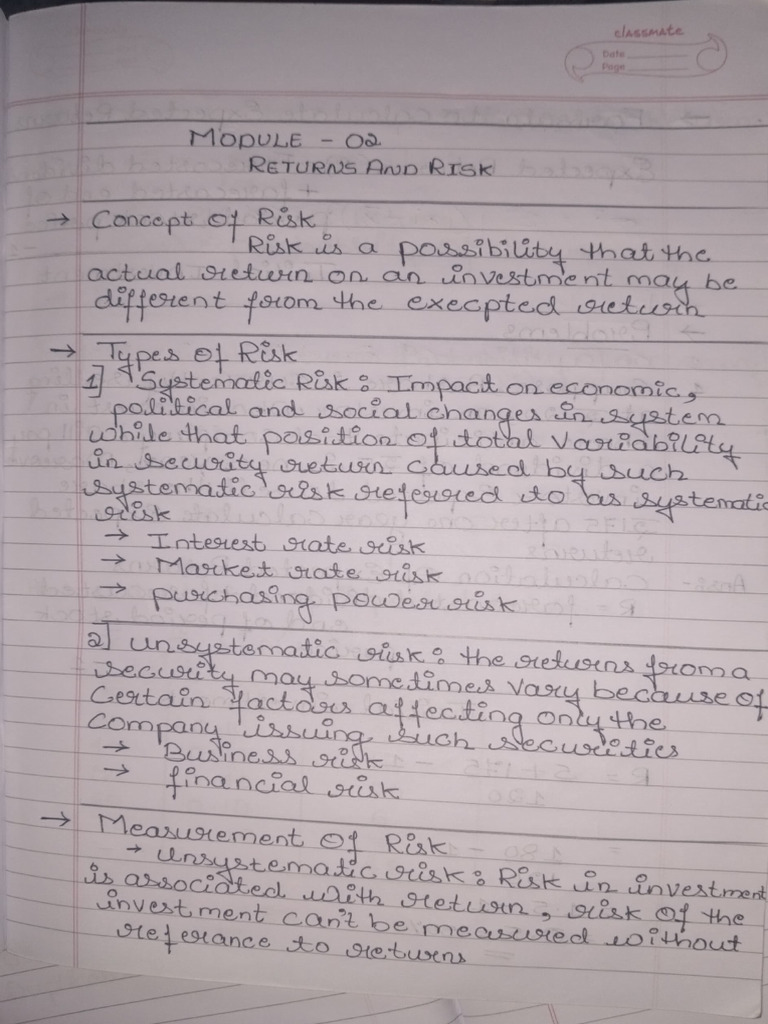 classmate
Date
Page
MODULE - 02
RETURNS AND RISK
→ Concept Of Risk
Risk is a possibility that the
actual return on an investment may be
different from the execpted return
→ Types Of Risk
1] Systematic Risk : Impact on economic,
political and social changes in system
while that position of total variability
in security return caused by such
systematic risk referred to as systematic
risk
→ Interest rate risk
→ Market rate risk
→ purchasing power risk
2] unsystematic risk : the returns from a
security may sometimes vary because of
Certain factors affecting only the
Company issuing such securities
→ Business risk
→ financial risk
→ Measurement Of Risk
→ unsystematic risk : Risk in investment
is associated with return, risk of the
investment can't be measured without
referance to returns